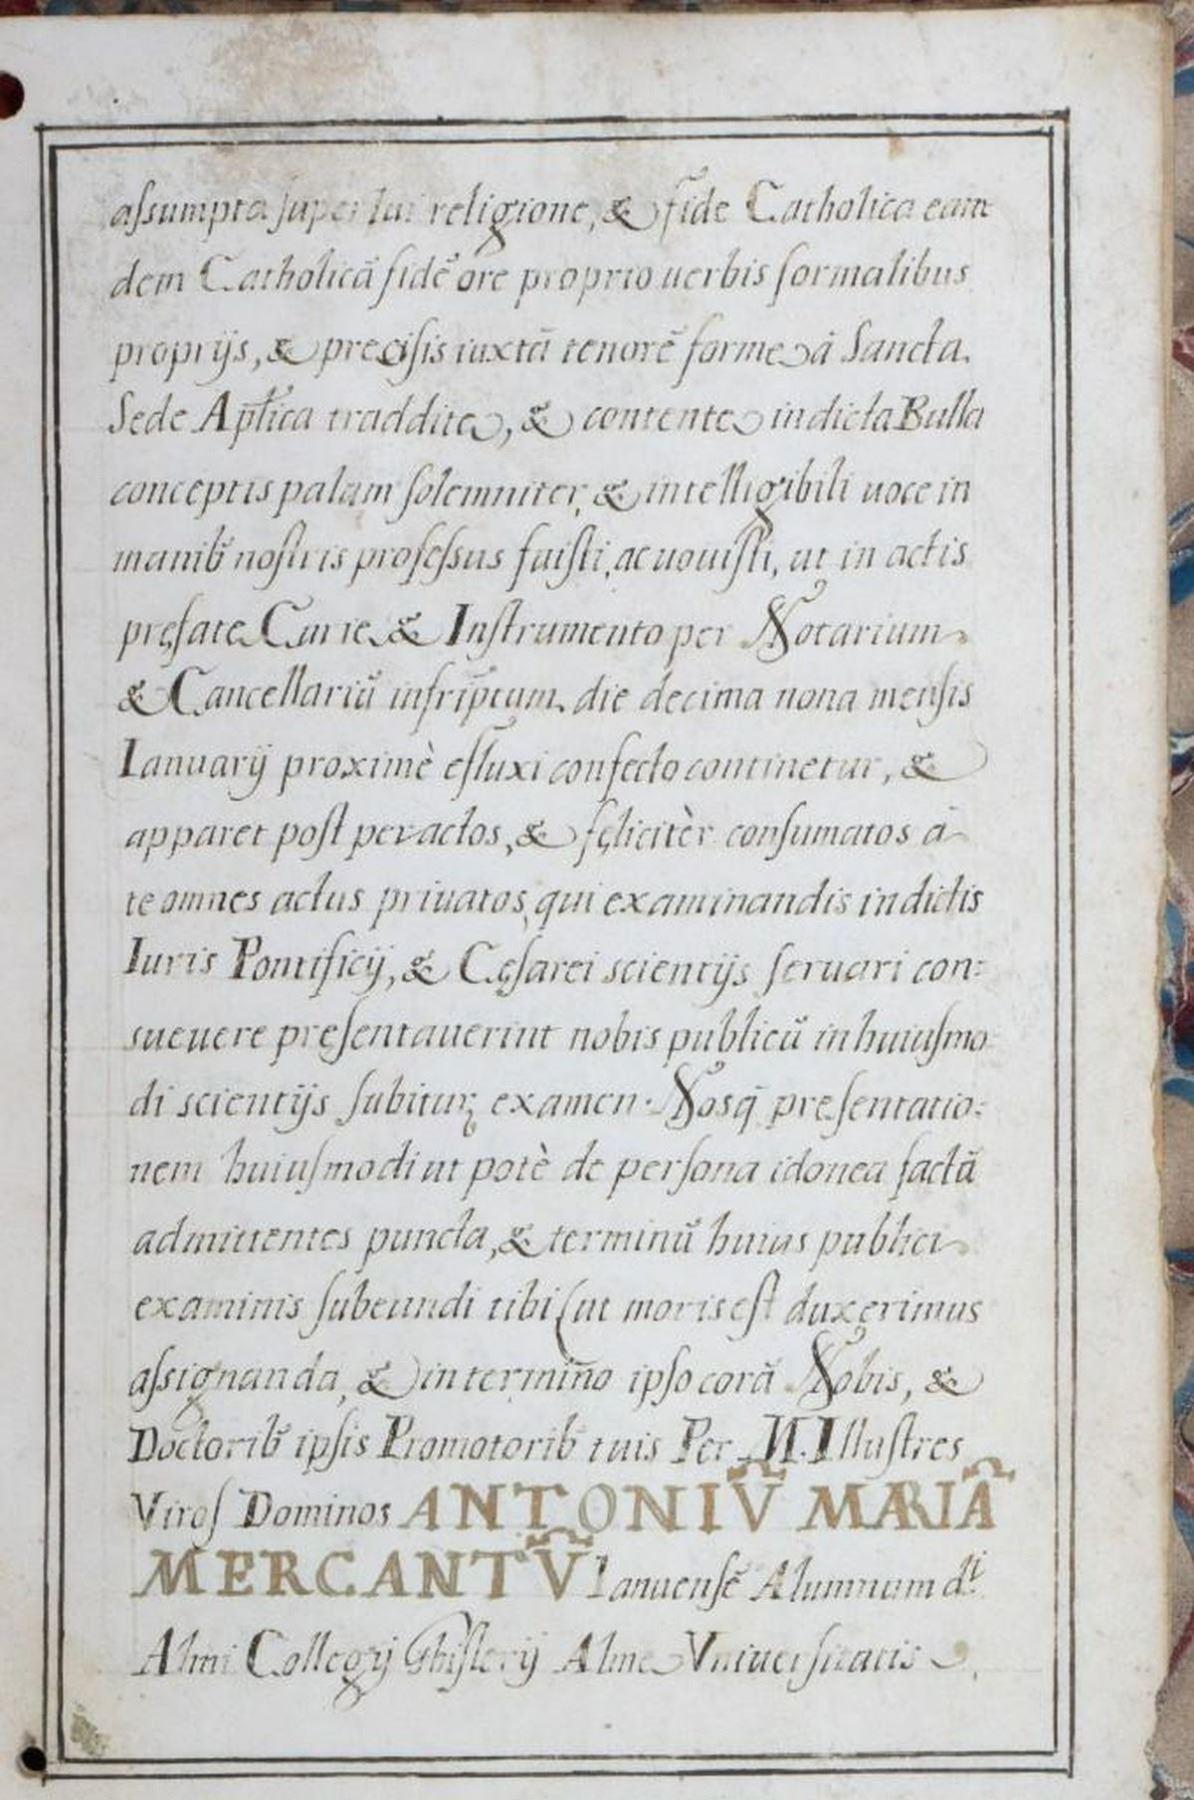 assumpta super tui religione, & fide Catholica eam
dem Catholicā fidē ore proprio uerbis formalibus
proprijs, & precisis iuxtā tenorē forme à Sancta.
Sede Apl̃ica traddite, & contente in dicta Bulla
conceptis palam solemniter, & intelligibili uoce in
manib' nostris professus fuisti, ac uouisti, ut in actis
pręfate Curie & Instrumento per Notarium
& Cancellariū infrip̄tum. die decima nona mensis
Ianuarij proximè efluxi confecto continetur, &
apparet post peractos, & fęlicitèr consumatos à
te omnes actus priuatos, qui examinandis in dictis
Iuris Pontificij, & Cęsarei scientijs seruari con:
sueuere presentauerint nobis publicū in huiusmo
di scientijs subiturę examen. Nosq̃ presentatio:
nem huiusmodi ut potè de persona idonea factā
admittentes puncta, & terminū huius publici
examinis subeundi tibi (ut moris est duxerimus
assignanda, & in termiño ipso corā Nobis, &
Doctorib' ipsis Promotorib' tuis Per M. Illustres
Viros Dominos ANTONIŪ MARIĀ
MERCANTŪ Ianuensē Alumnum d.ti
Almi Collegij Ghislerij Alme Vniuersitatis